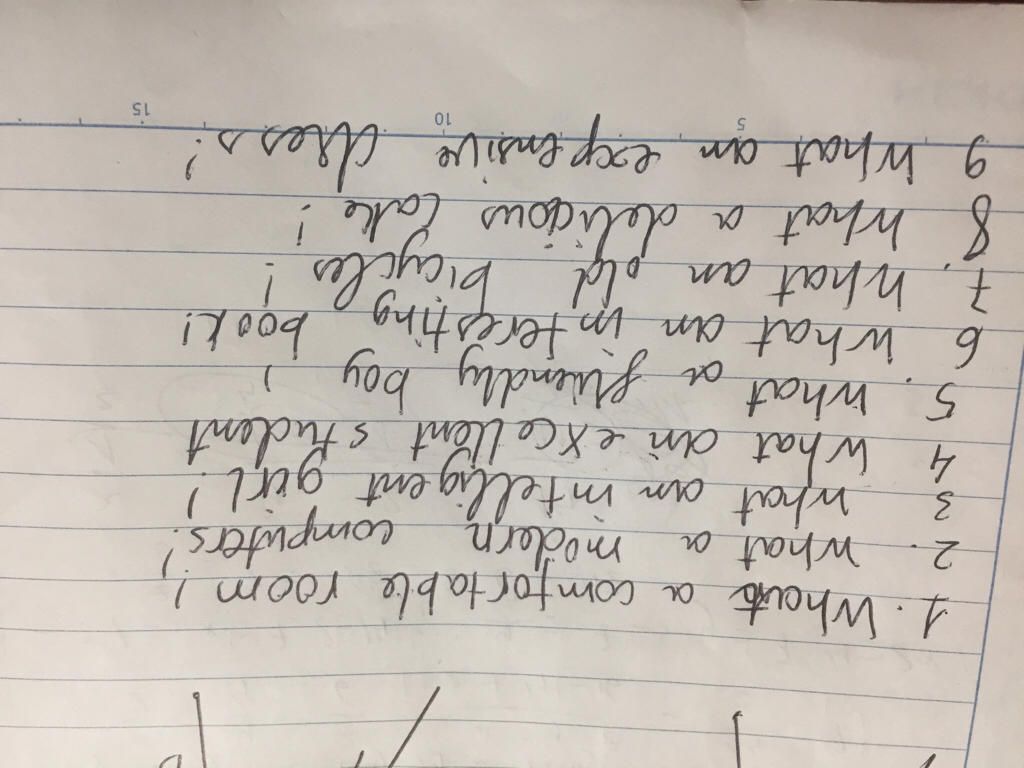 1. What a comfortable room!
2. What a modern computers!
3 What an intelligent girl!
4 What an excellent student
5. What a friendly boy!
6 What an interesting book!
7. What an old bicycles!
8 What a delicious cake!
9 What an expensive dress!
5 10 15